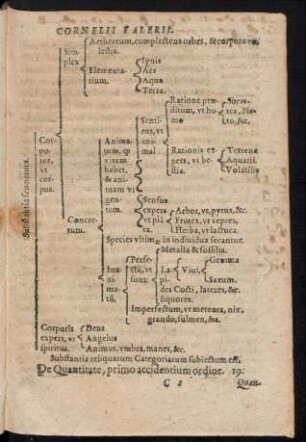 CORNELII VALERII.
Aethereum, complectens orbes, & corpora cœ-
lestia.
Sim-
plex
Elementa-
rium.
Ignis
Aer
Aqua
Terra.
Substantia secunda, vt
Cor-
porea,
vt
cor-
pus.
Concre-
tum.
Anima-
tum, qđ
vitam
habet,
& ani-
mam vi
gen-
tem.
Senti-
ens, vt
animal
Ratione præ-
ditum, vt ho-
mo
Socra-
tes, Pla-
to, &c.
Rationis ex-
pers, vt be-
stia.
Terrena
Aquatil.
Volatilis
Sensus
expers
vt plã-
ta
Arbor, vt, pyrus, &c.
Frutex, vt vepres,
Herba, vt lactuca.
Species vltimę in indiuidua secantur.
Ina-
ni-
ma-
tũ,
Perfe-
ctũ, vt
sunt
Metalla & fossilia.
La-
pi-
des
Viui,
Gemma
Saxum.
Cocti, lateres, &c.
liquores.
Imperfectum, vt meteora, nix,
grando, fulmen, &c.
Corporis
expers, vt
spiritus.
Deus
Angelus
Animus, vmbra, manes, &c.
Substantia reliquarum Categoriarum subiectum est.
De Quantitate, primo accidentium ordine. 19.
C 2
Quan-